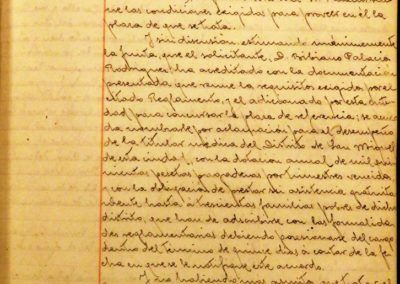 ne las condiciones exigidas para proveer en él la
plaza de que se trata.
Y sin discusión, estimando unánimemente
la Junta, que el solicitante, D. Bibiano Palacio
Rodríguez, ha acreditado con la documentación
presentada, que reune los requisitos exigidos por el
citado Reglamento, y el adicionado por esta
para concursar la plaza de referencia; se acuer
da nombrarle por aclamación para el desempeño
de la titular médica del Distrito de San Miguel
de esta ciudad, con la dotación anual de mil qui
nientas pesetas pagaderas por trimestres vencidos
y con la obligación de prestar su asistencia gratuita
mente hasta á trescientas familias pobres de dicho
distrito, que han de adscribirse con las formalida
des reglamentarias debiendo posesionarse del cargo
dentro del término de quince días á contar de la fe
cha en que se le notifique este acuerdo.
Y no habiendo mas